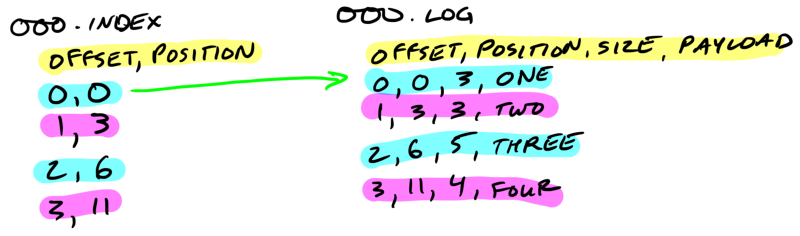 000.INDEX
OFFSET, POSITION
0,0
1,3
2,6
3,11
000.LOG
OFFSET, POSITION, SIZE, PAYLOAD
0,0,3,ONE
1,3,3,TWO
2,6,5,THREE
3,11,4,FOUR